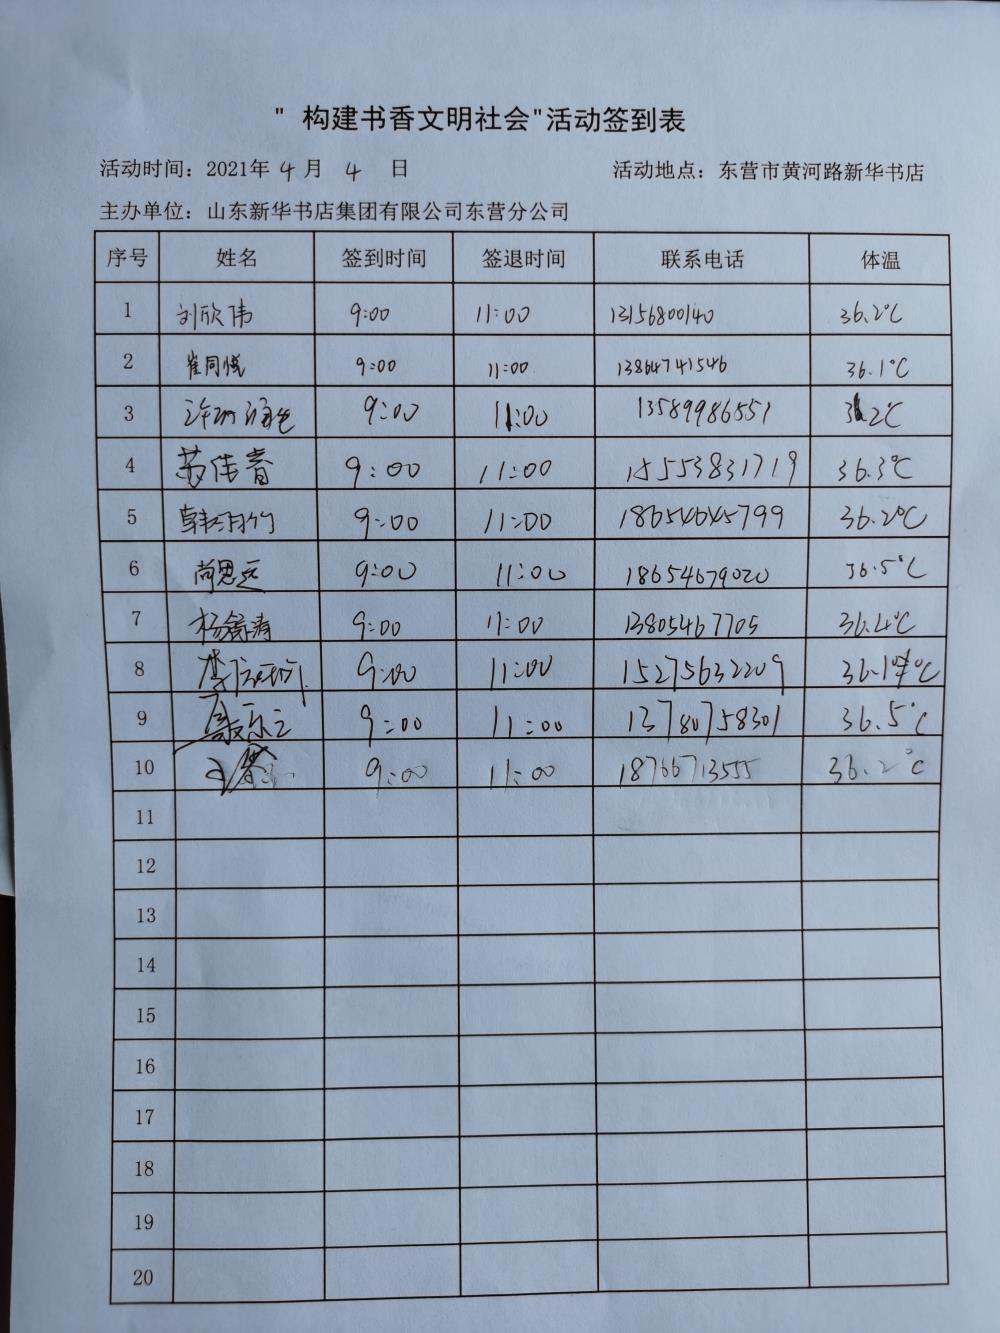 " 构建书香文明社会"活动签到表
活动时间：2021年 4 月 4 日 活动地点：东营市黄河路新华书店
主办单位：山东新华书店集团有限公司东营分公司
序号 姓名 签到时间 签退时间 联系电话 体温
1 刘欣伟 9:00 11:00 13156800140 36.2℃
2 崔同悦 9:00 11:00 13864741546 36.1℃
3 9:00 11:00 13589986551
4 苏佳音 9:00 11:00 15553831719 36.3℃
5 9:00 11:00 18654645799 36.2℃
6 尚思远 9:00 11:00 18654679020 36.5℃
7 杨舒涛 9:00 11:00 13805467705 36.4℃
8 9:00 11:00 15275632209 36.1℃
9 9:00 11:00 13780758301 36.5℃
10 9:00 11:00 18766713555 36.2℃
11
12
13
14
15
16
17
18
19
20